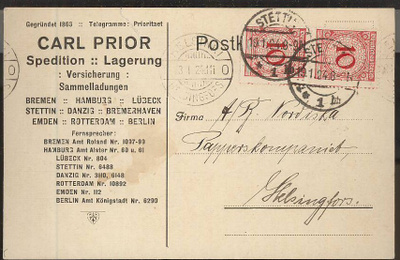 Gegründet 1863 :: Telegramme: Prioritzet
CARL PRIOR
Spedition :: Lagerung
: Versicherung :
Sammelladungen
BREMEN :: HAMBURG :: LÜBECK
STETTIN :: DANZIG :: BREMERHAVEN
EMDEN :: ROTTERDAM :: BERLIN
Fernsprecher:
BREMEN Amt Roland Nr. 1097-99
HAMBURG Amt Alster Nr. 60 u. 61
LÜBECK Nr. 804
STETTIN Nr. 6488
DANZIG Nr. 3110, 6148
ROTTERDAM Nr. 10892
EMDEN Nr. 112
BERLIN Amt Königstadt Nr. 6293
Postk
STETTIN
10
10
1
1
Firma A/B Nordiska
Papperskompaniet,
Helsingfors.